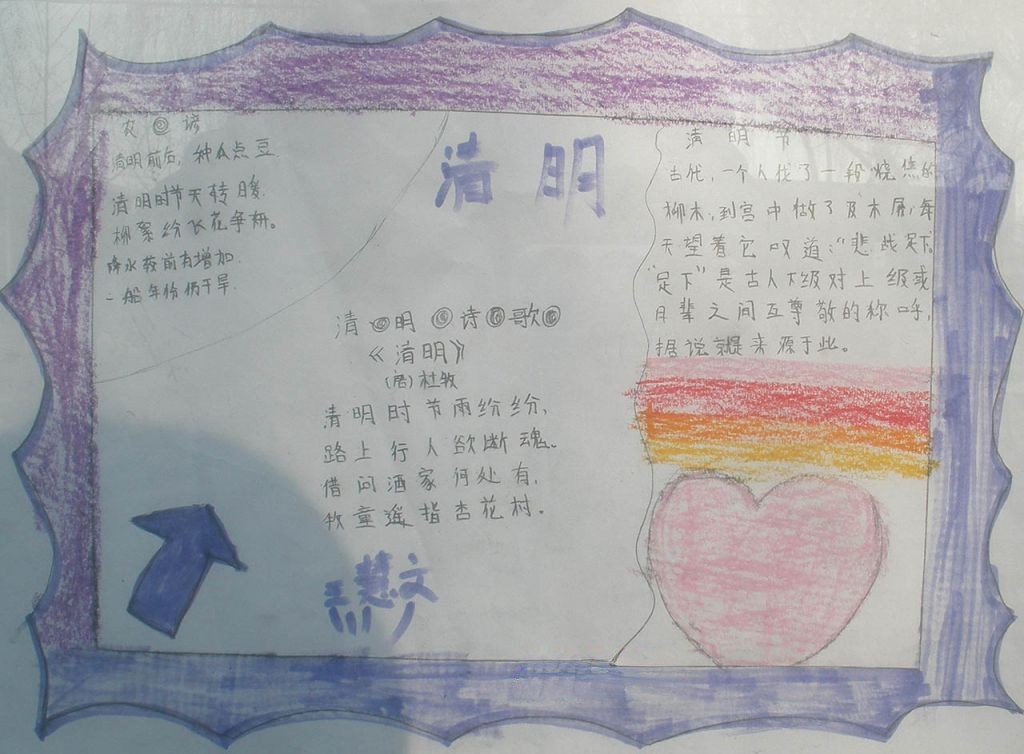 农谚
清明前后，种瓜点豆
清明时节天转暖
柳絮纷飞花争妍。
降水较前有增加.
一般年份仍干旱.
清明
清明诗歌
《清明》
(唐)杜牧
清明时节雨纷纷，
路上行人欲断魂。
借问酒家何处有，
牧童遥指杏花村。
慧文
清明节
古代，一个人找了一段烧焦的
柳木，到宫中做了双木屐，每
天望着它叹道：“悲哉足下。
“足下”是古人下级对上级或
月辈之间互尊敬的称呼，
据说就是来源于此。